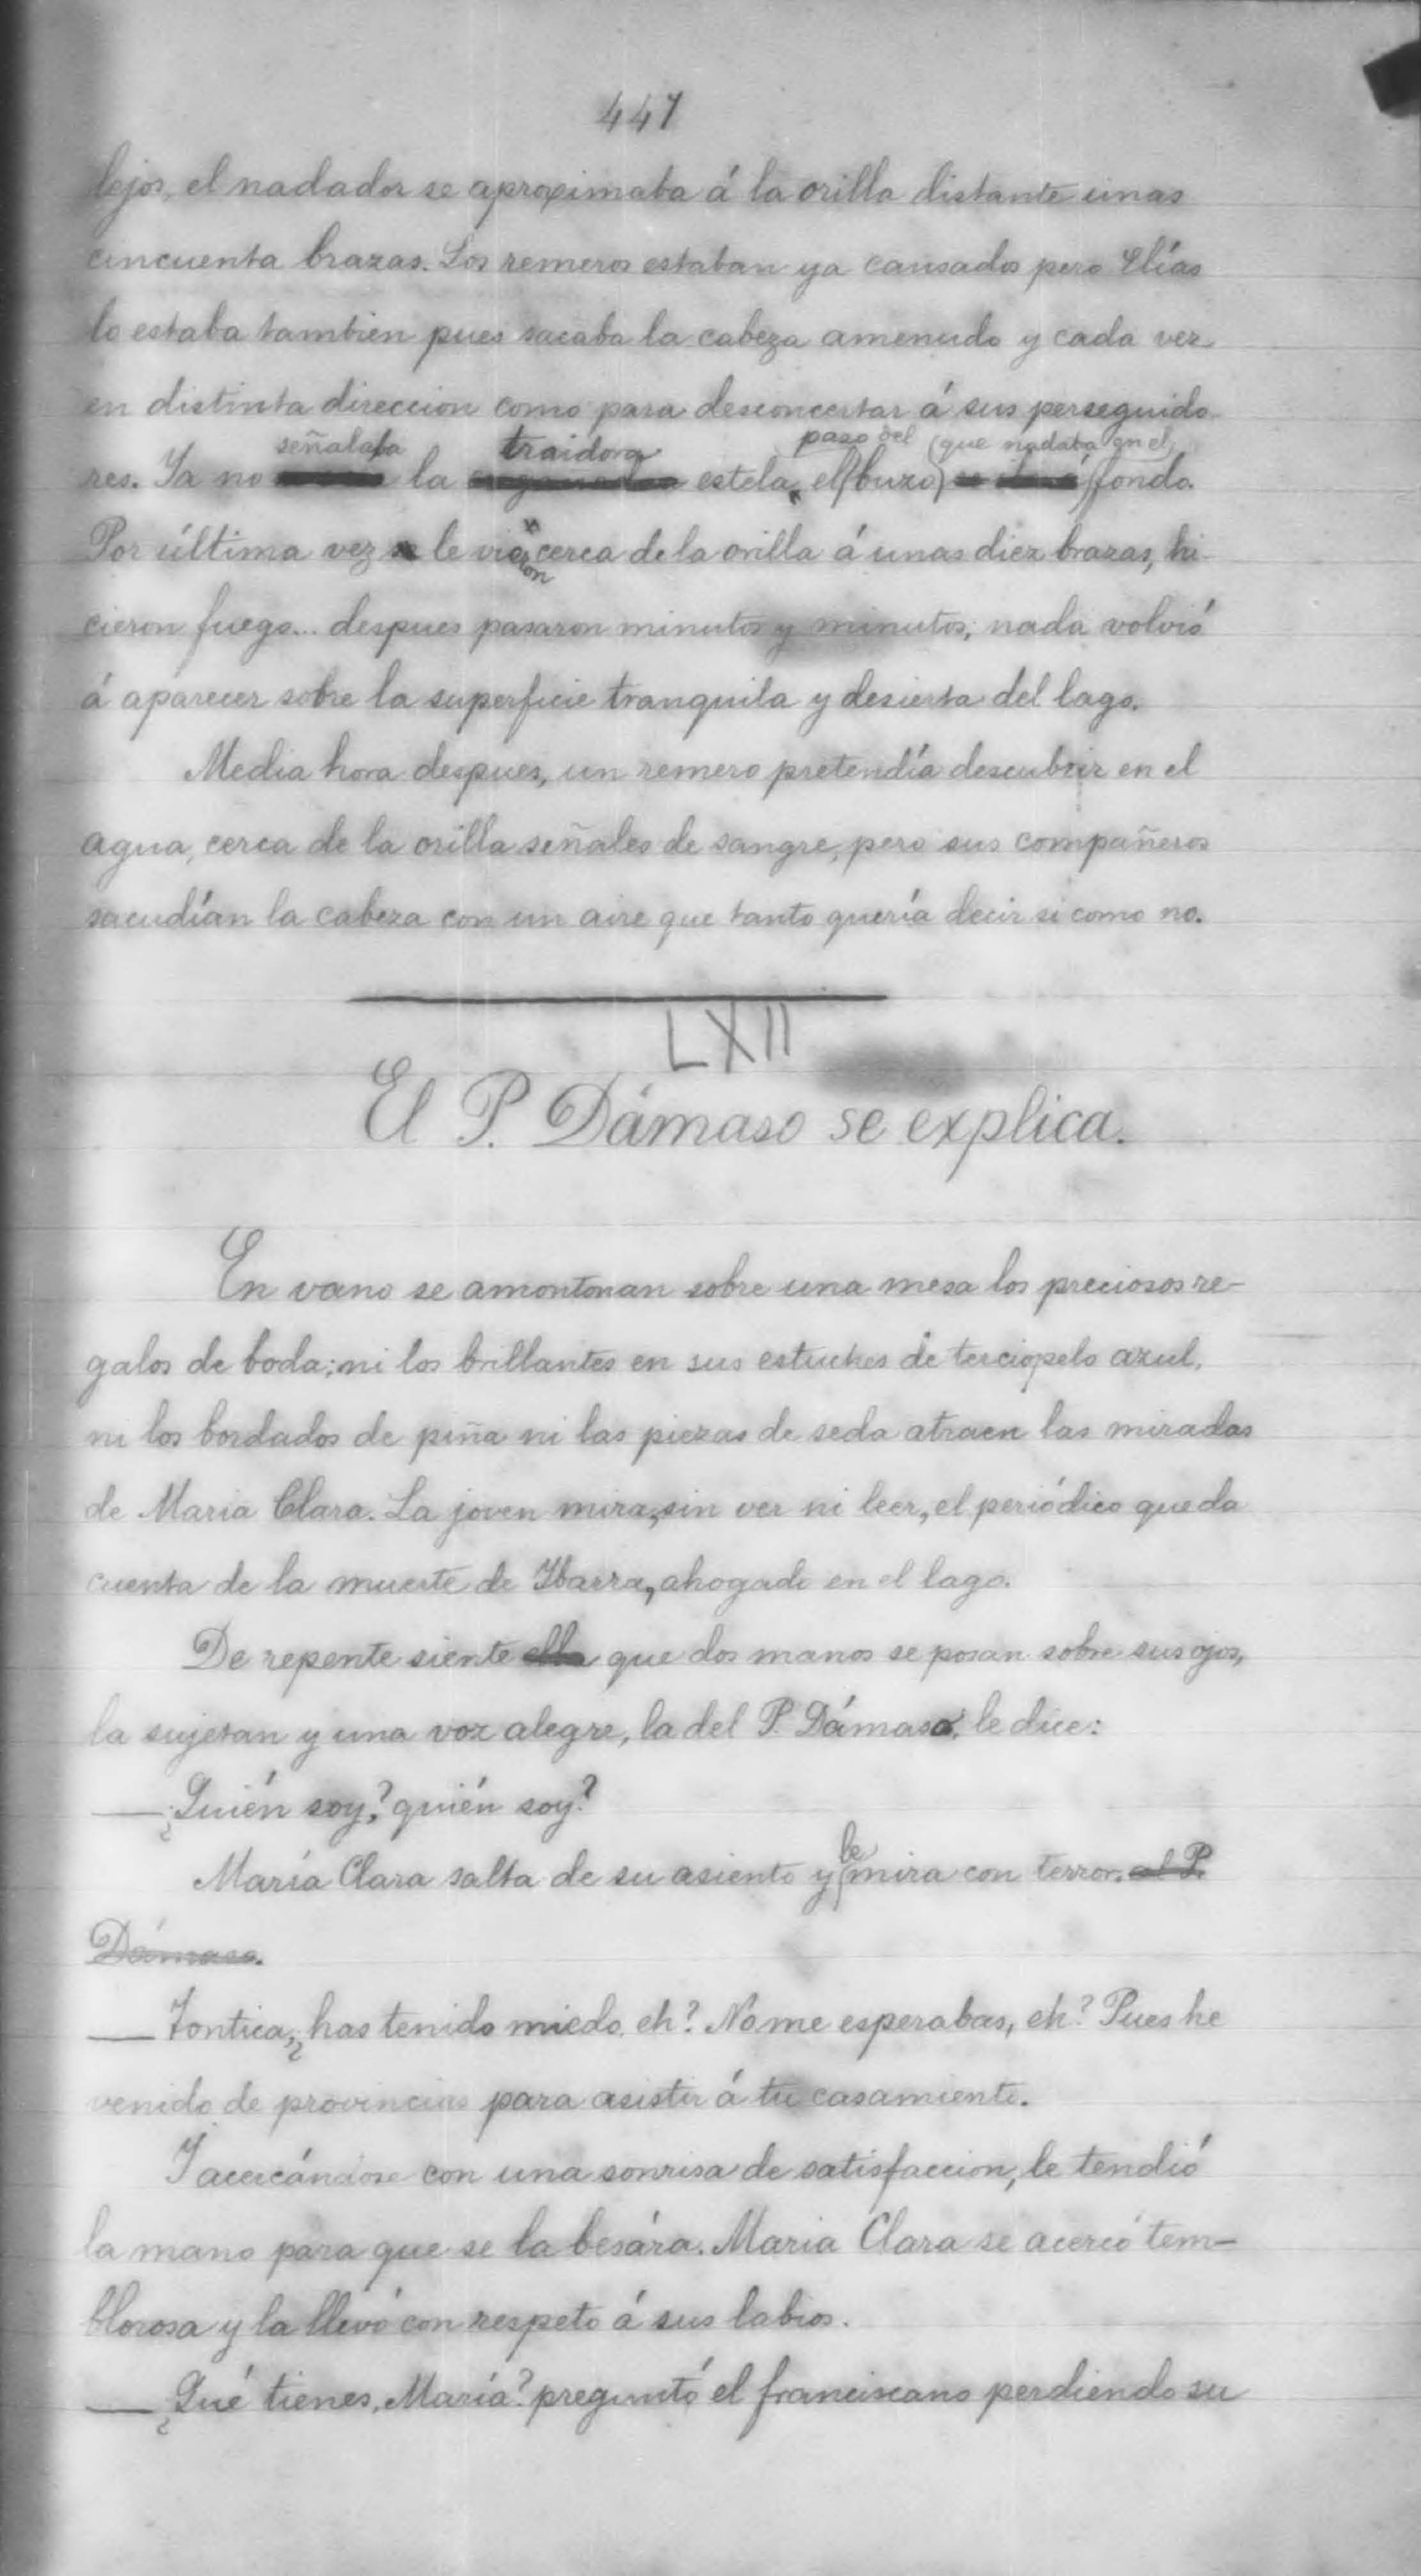 447
lejos, el nadador se aproximaba á la orilla distante unas
cincuenta brazas. Los remeros estaban ya cansados pero Elías
lo estaba tambien pues sacaba la cabeza amenudo y cada vez
en distinta direccion como para desconcertar á sus perseguido-
señalaba traidora paso del (que nadaba en el
res. Ya no la estela, el buzo fondo.
Por última vez le vieron cerca de la orilla á unas diez brazas, hi-
cieron fuego... despues pasaron minutos y minutos; nada volvió
á aparecer sobre la superficie tranquila y desierta del lago.
Media hora despues, un remero pretendía descubrir en el
agua, cerca de la orilla señales de sangre, pero sus compañeros
sacudían la cabeza con un aire que tanto quería decir si como no.
LXII
El P. Dámaso se explica.
En vano se amontonan sobre una mesa los preciosos re-
galos de boda; ni los brillantes en sus estuches de terciopelo azul,
ni los bordados de piña ni las piezas de seda atraen las miradas
de Maria Clara. La joven mira, sin ver ni leer, el periódico que da
cuenta de la muerte de Ibarra, ahogado en el lago.
De repente siente ella que dos manos se posan sobre sus ojos,
la sujetan y una voz alegre, la del P. Dámaso, le dice:
— ¿Quién soy? quién soy?
María Clara salta de su asiento y le mira con terror. al P.
Dámaso.
— Tontica, ¿has tenido miedo, eh? No me esperabas, eh? Pues he
venido de provincias para asistir á tu casamiento.
Y acercándose con una sonrisa de satisfaccion, le tendió
la mano para que se la besára. Maria Clara se acercó tem-
blorosa y la llevó con respeto á sus labios.
— ¿Qué tienes, María? preguntó el franciscano perdiendo su